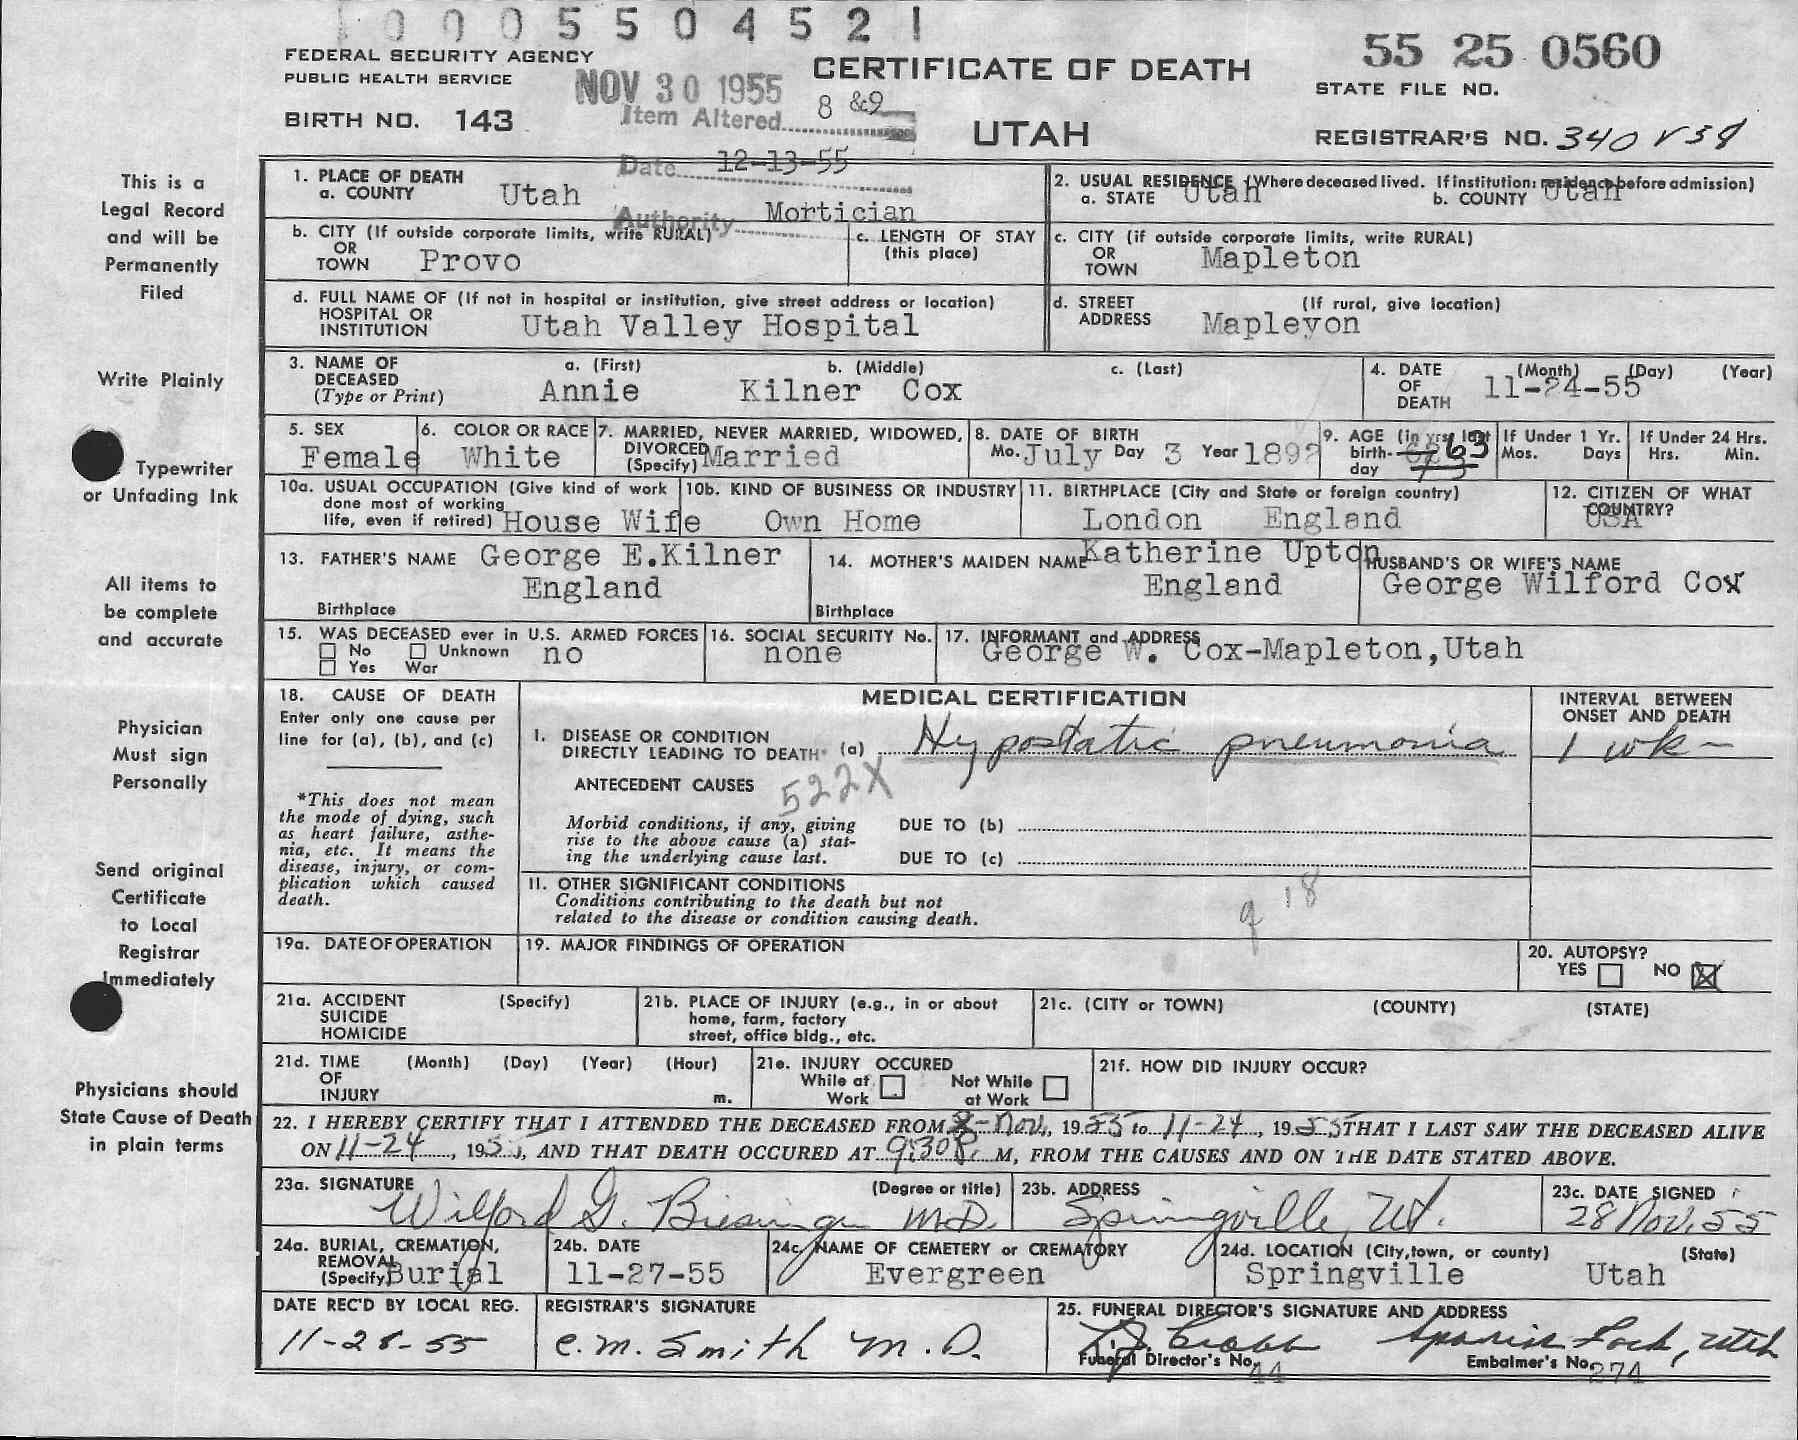 0 0 0 5 5 0 4 5 2 1
FEDERAL SECURITY AGENCY
PUBLIC HEALTH SERVICE
BIRTH NO. 143
NOV 30 1955
Item Altered 8 &9
Date 12-13-55
Authority Mortician
CERTIFICATE OF DEATH
UTAH
55 25 0560
STATE FILE NO.
REGISTRAR'S NO. 340 V58
This is a
Legal Record
and will be
Permanently
Filed
Write Plainly
Typewriter
or Unfading Ink
All items to
be complete
and accurate
Physician
Must sign
Personally
Send original
Certificate
to Local
Registrar
Immediately
Physicians should
State Cause of Death
in plain terms
1. PLACE OF DEATH
a. COUNTY Utah
2. USUAL RESIDENCE (Where deceased lived. If institution: residence before admission)
a. STATE Utah b. COUNTY Utah
b. CITY (If outside corporate limits, write RURAL)
OR
TOWN Provo
c. LENGTH OF STAY
(this place)
c. CITY (if outside corporate limits, write RURAL)
OR
TOWN Mapleton
d. FULL NAME OF (If not in hospital or institution, give street address or location)
HOSPITAL OR
INSTITUTION Utah Valley Hospital
d. STREET (If rural, give location)
ADDRESS Mapleyon
3. NAME OF a. (First) b. (Middle) c. (Last)
DECEASED
(Type or Print) Annie Kilner Cox
4. DATE (Month) (Day) (Year)
OF
DEATH 11-24-55
5. SEX
Female
6. COLOR OR RACE
White
7. MARRIED, NEVER MARRIED, WIDOWED,
DIVORCED
(Specify) Married
8. DATE OF BIRTH
Mo. July Day 3 Year 1892
9. AGE (in yrs. last
birth-
day 63
If Under 1 Yr.
Mos. Days
If Under 24 Hrs.
Hrs. Min.
10a. USUAL OCCUPATION (Give kind of work
done most of working
life, even if retired) House Wife
10b. KIND OF BUSINESS OR INDUSTRY
Own Home
11. BIRTHPLACE (City and State or foreign country)
London England
12. CITIZEN OF WHAT
COUNTRY?
USA
13. FATHER'S NAME George E.Kilner
England
Birthplace
14. MOTHER'S MAIDEN NAME Katherine Upton
England
Birthplace
HUSBAND'S OR WIFE'S NAME
George Wilford Cox
15. WAS DECEASED ever in U.S. ARMED FORCES
No Unknown no
Yes War
16. SOCIAL SECURITY No.
none
17. INFORMANT and ADDRESS
George W. Cox-Mapleton,Utah
18. CAUSE OF DEATH
Enter only one cause per
line for (a), (b), and (c)
*This does not mean
the mode of dying, such
as heart failure, asthe-
nia, etc. It means the
disease, injury, or com-
plication which caused
death.
MEDICAL CERTIFICATION
INTERVAL BETWEEN
ONSET AND DEATH
I. DISEASE OR CONDITION
DIRECTLY LEADING TO DEATH* (a) Hypostatic pneumonia 1 wk-
ANTECEDENT CAUSES 522X
Morbid conditions, if any, giving
rise to the above cause (a) stat-
ing the underlying cause last.
DUE TO (b)
DUE TO (c)
II. OTHER SIGNIFICANT CONDITIONS
Conditions contributing to the death but not
related to the disease or condition causing death.
9 18
19a. DATE OF OPERATION
19. MAJOR FINDINGS OF OPERATION
20. AUTOPSY?
YES NO
21a. ACCIDENT (Specify)
SUICIDE
HOMICIDE
21b. PLACE OF INJURY (e.g., in or about
home, farm, factory
street, office bldg., etc.
21c. (CITY or TOWN) (COUNTY) (STATE)
21d. TIME (Month) (Day) (Year) (Hour)
OF
INJURY m.
21e. INJURY OCCURED
While at Not While
Work at Work
21f. HOW DID INJURY OCCUR?
22. I HEREBY CERTIFY THAT I ATTENDED THE DECEASED FROM Nov., 1955 to 11-24, 1955 THAT I LAST SAW THE DECEASED ALIVE
ON 11-24, 1955, AND THAT DEATH OCCURED AT 9:30P. M, FROM THE CAUSES AND ON THE DATE STATED ABOVE.
23a. SIGNATURE (Degree or title)
Wilford G. Biesinger M.D.
23b. ADDRESS
Springville, Ut.
23c. DATE SIGNED
28 Nov. 55
24a. BURIAL, CREMATION,
REMOVAL
(Specify) Burial
24b. DATE
11-27-55
24c. NAME OF CEMETERY or CREMATORY
Evergreen
24d. LOCATION (City, town, or county) (State)
Springville Utah
DATE REC'D BY LOCAL REG.
11-28-55
REGISTRAR'S SIGNATURE
C.M. Smith M.D.
25. FUNERAL DIRECTOR'S SIGNATURE AND ADDRESS
Spanish Fork, Utah
Funeral Director's No. 44
Embalmer's No. 274